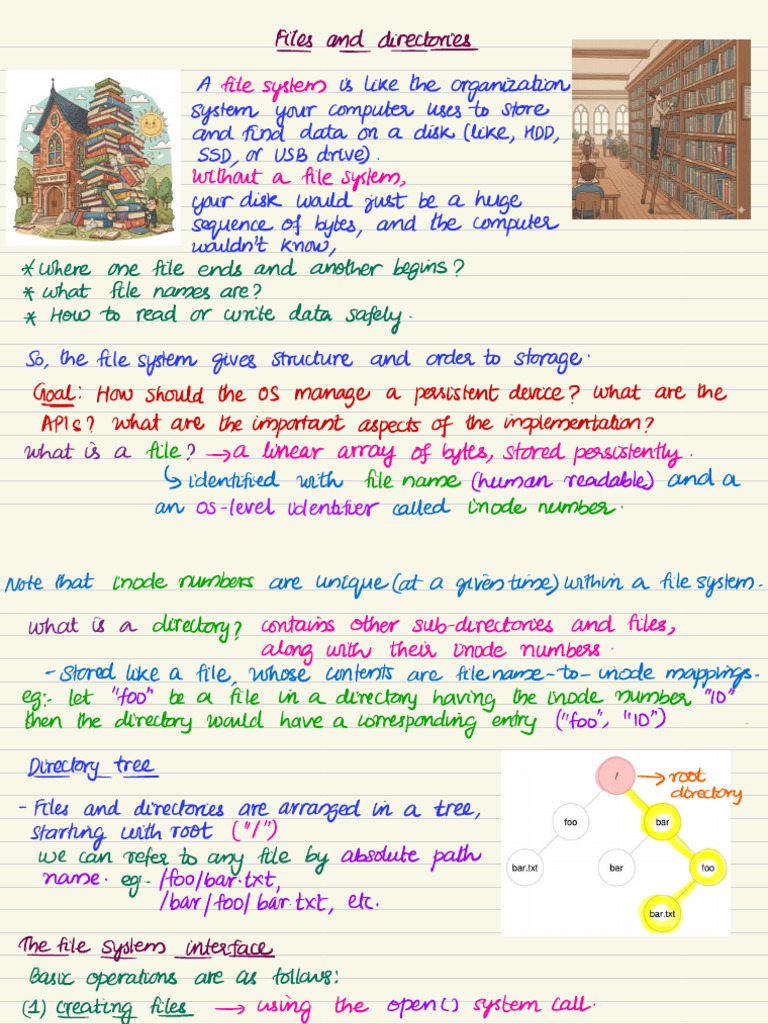 Files and directories
A file system is like the organization
system your computer uses to store
and find data on a disk (like, HDD,
SSD, or USB drive).
without a file system,
your disk would just be a huge
sequence of bytes, and the computer
wouldn't know,
* where one file ends and another begins?
* what file names are?
* How to read or write data safely.
So, the file system gives structure and order to storage.
Goal: How should the OS manage a persistent device? what are the
APIs? what are the important aspects of the implementation?
what is a file? → a linear array of bytes, stored persistently.
↳ identified with file name (human readable) and a
an OS-level identifier called inode number.
Note that inode numbers are unique (at a given time) within a file system.
what is a directory? contains other sub-directories and files,
along with their inode numbers.
- Stored like a file, whose contents are filename-to-inode mappings.
eg:- let "foo" be a file in a directory having the inode number "10"
then the directory would have a corresponding entry ("foo", "10")
Directory tree
- Files and directories are arranged in a tree,
starting with root ("/")
we can refer to any file by absolute path
name. eg- /foo/bar.txt,
/bar/foo/bar.txt, etc.
/ → root
directory
foo bar
bar.txt bar foo
bar.txt
The file system interface
Basic operations are as follows:
(1) creating files → using the open() system call.